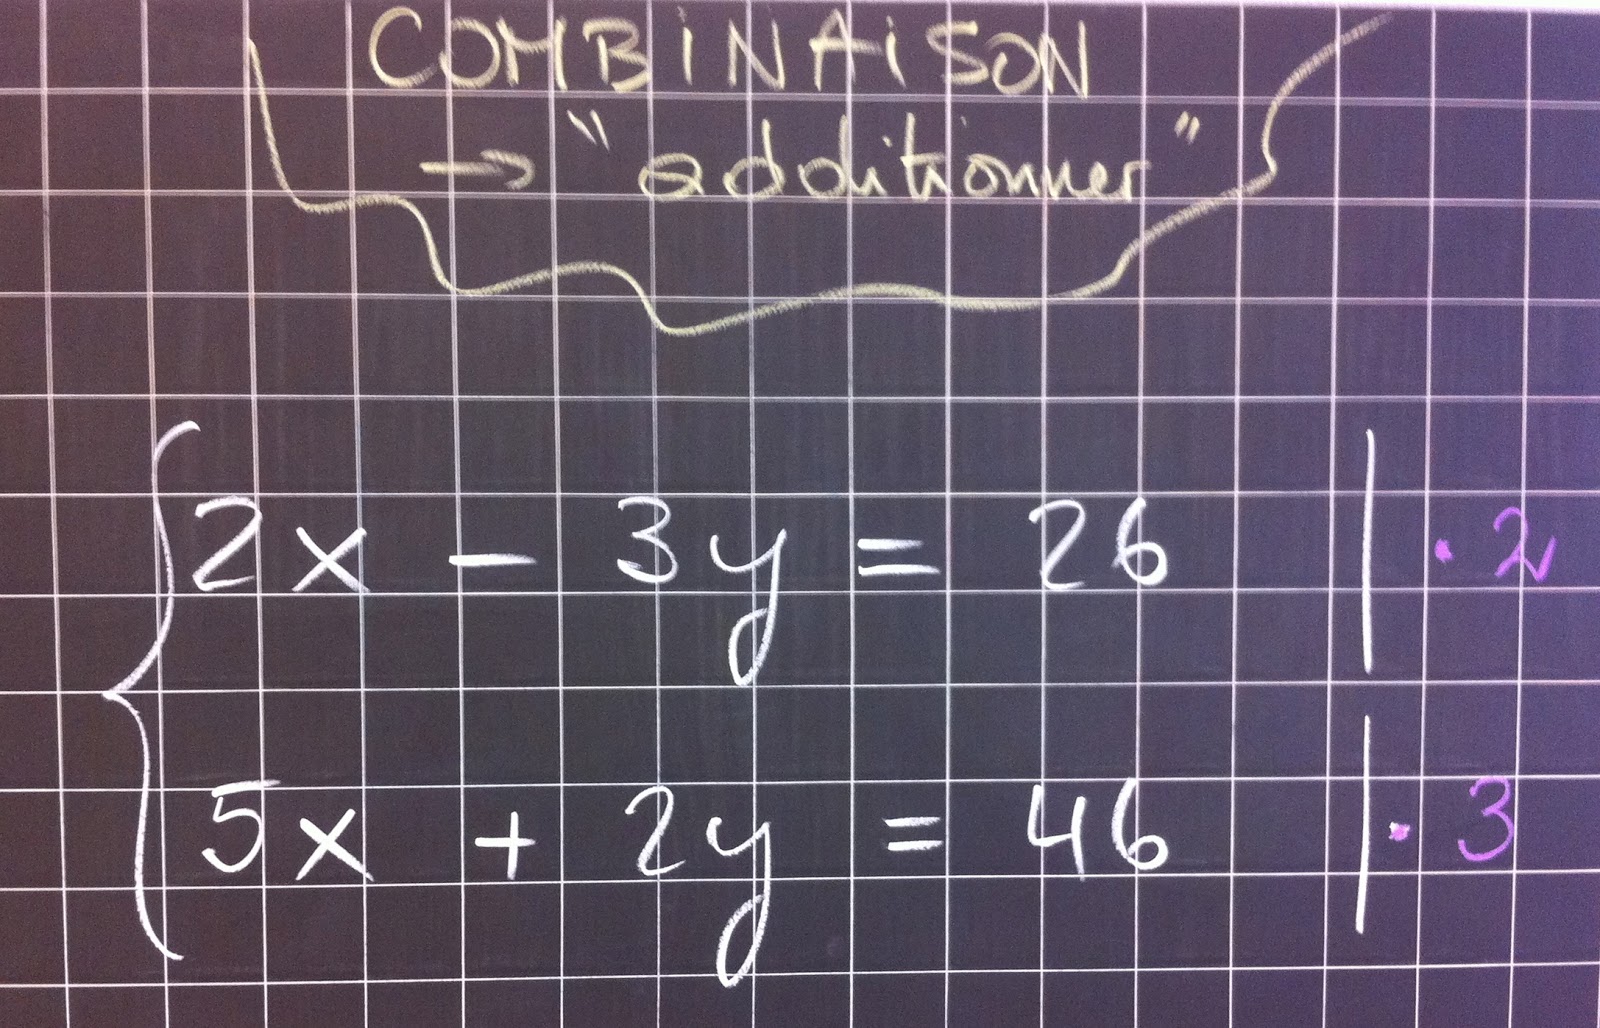 COMBINAISON
→ "additionner"
2x - 3y = 26 | · 2
5x + 2y = 46 | · 3